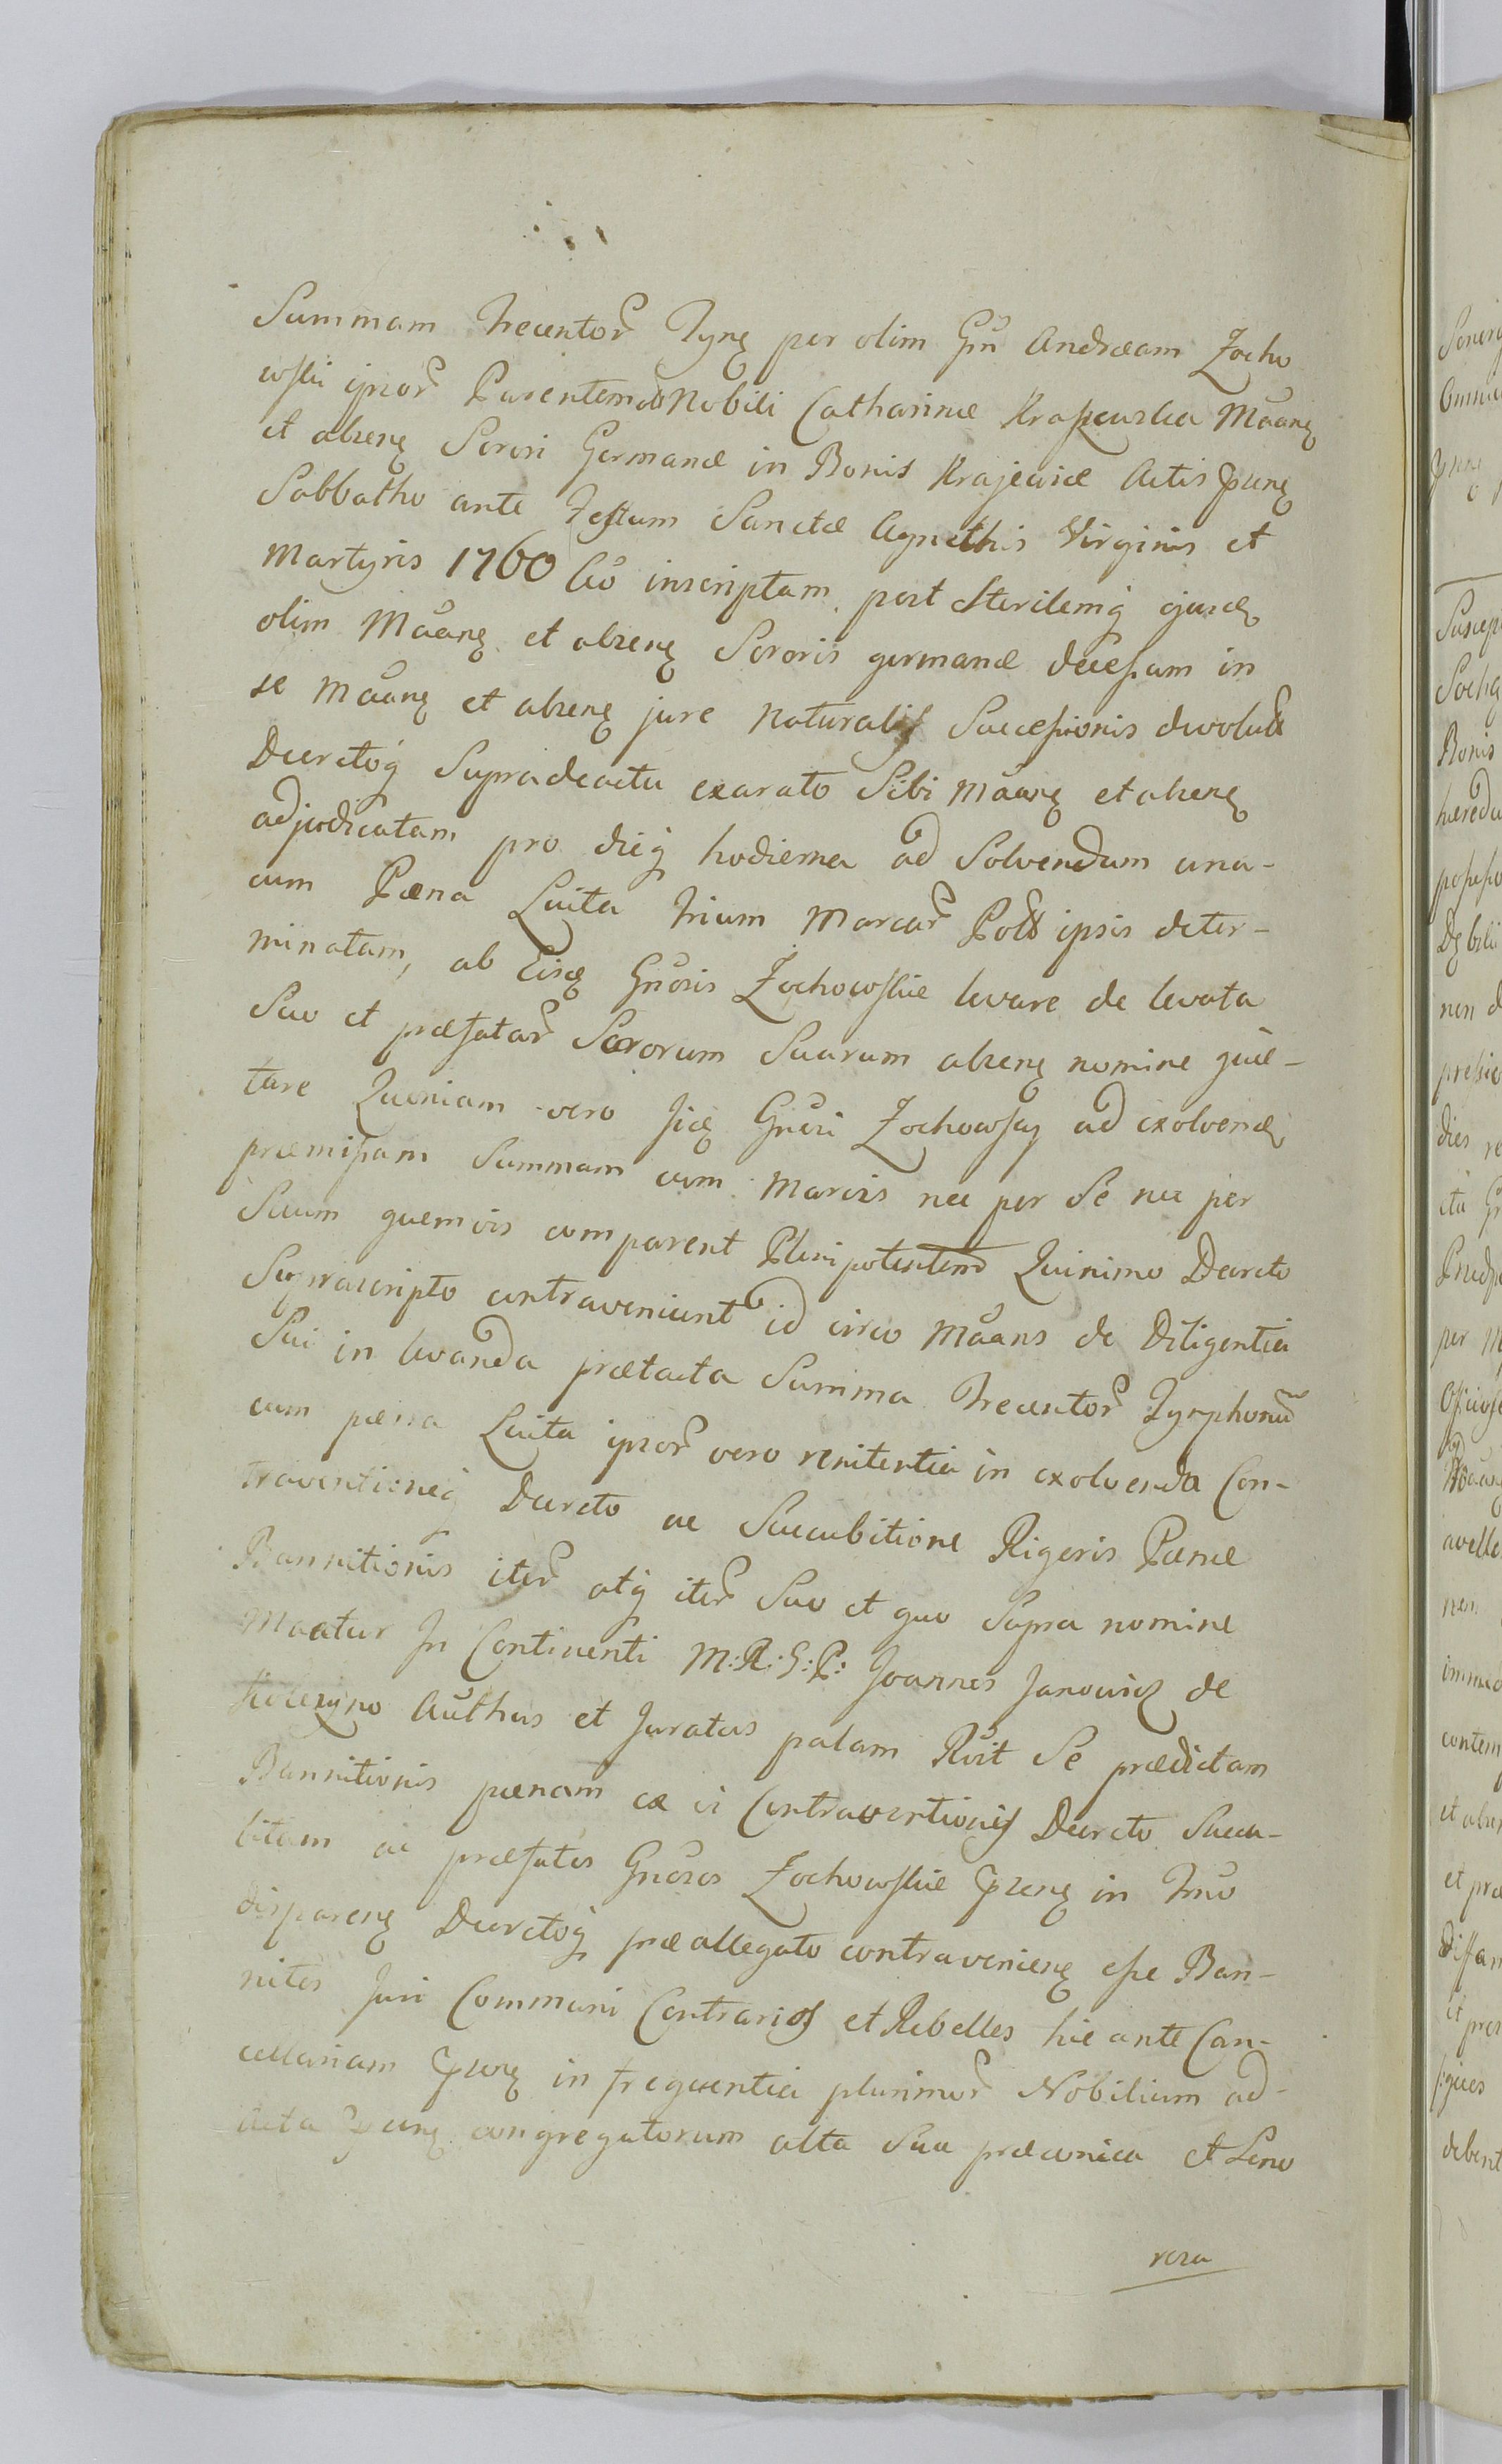 Summam Trecentor Tynę per olim Gm̃ Andream Zocho
wski ipsor Parentem Nobili Catharinæ Kraszewska Mãanę
et absenę Sorori Germanæ in Bonis Krajewice Actis Præsnę
Sabbatho ante Festum Sanctæ Agnethis Virginis et
Martyris 1760 Ao inscriptam, post Sterilemq ejusdę
olim Mãanę et absenę Sororis germanæ decessum in
se Mãanę et absenę jure Naturalis Successionis devolut
Decretoq Supradeactu exarato Sibi Mãanę et absenę
adjudicatam pro dieq hodierna ad Solvendum una-
cum Pæna Luita trium Marcar Poll ipsis deter-
minatam, ab Eisdę Gnõsis Zochowskie levare de levata
Suo et præfatar Sororum Suarum absenę nomine quie-
tare Quoniam vero Iidę Gnõsi Zochowscy ad exolvendę
præmissam Summam cum Marcis nec per Se nec per
Suum quemvis comparent Plenipotentem Quinimo Decreto
Suprascripto contraveniunt id circo Mãans de Diligentia
Sui in levanda prætacta Summa Trecentor Tynphonũ
cum pæna Luita ipsor vero renitentia in exolvenda Con-
traventioneq Decreto ac Succubitione Rigoris Pænæ
Bannitionis iter atq iter Suo et quo Supra nomine
Maatur In Continenti M: R: G: P: Joannes Janowicz de
Authus et Juratus palam Rũit Se prædictam
Bannitionis pænam ex vi Contraventionis Decreto Succu-
bitam ac præfatos Gnõsos Zochowskie Præsnę in Trno
disparenę Decretoq præallegato contravenienę esse Ban-
nitos Juri Communi Contrarios et Rebelles hic ante Can-
cellariam Præsnę in frequentia plurimor Nobilium ad-
Acta Præsnę congregatorum alta Sua præconica et Sono
rosa